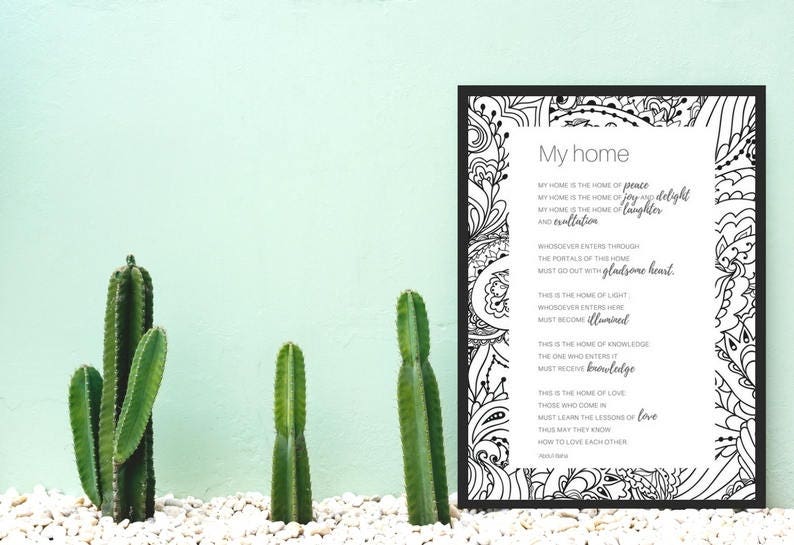 My home
MY HOME IS THE HOME OF peace
MY HOME IS THE HOME OF joy AND delight
MY HOME IS THE HOME OF laughter
AND exultation
WHOSOEVER ENTERS THROUGH
THE PORTALS OF THIS HOME
MUST GO OUT WITH gladsome heart.
THIS IS THE HOME OF LIGHT .
WHOSOEVER ENTERS HERE
MUST BECOME illumined
THIS IS THE HOME OF KNOWLEDGE
THE ONE WHO ENTERS IT
MUST RECEIVE knowledge
THIS IS THE HOME OF LOVE:
THOSE WHO COME IN
MUST LEARN THE LESSONS OF love
THUS MAY THEY KNOW
HOW TO LOVE EACH OTHER.
'Abdu'l-Bahá